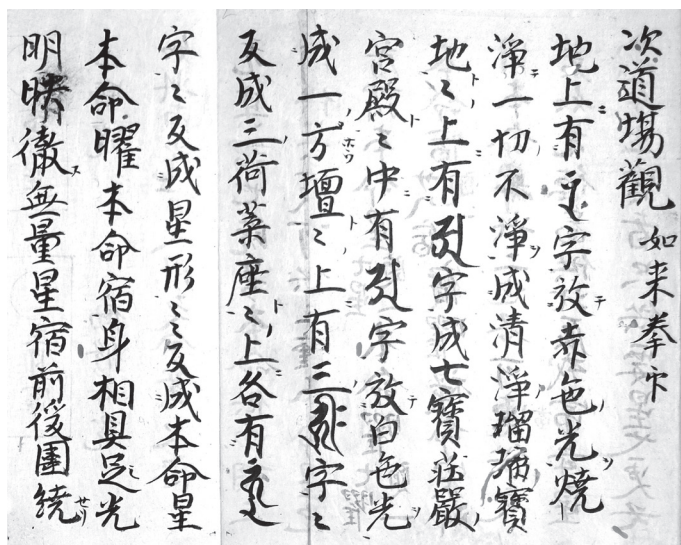 次道場觀 如来拳印
地上有字放赤色光燒
淨一切不淨成清淨瑠璃寶
地〻上有字成七寶莊嚴
宮殿〻中有字放白色光
成一方壇〻上有三字〻
反成三荷葉座〻上各有
字〻反成星形〻反成本命星
本命曜本命宿身相具足光
明晴徹無量星宿前後圍繞